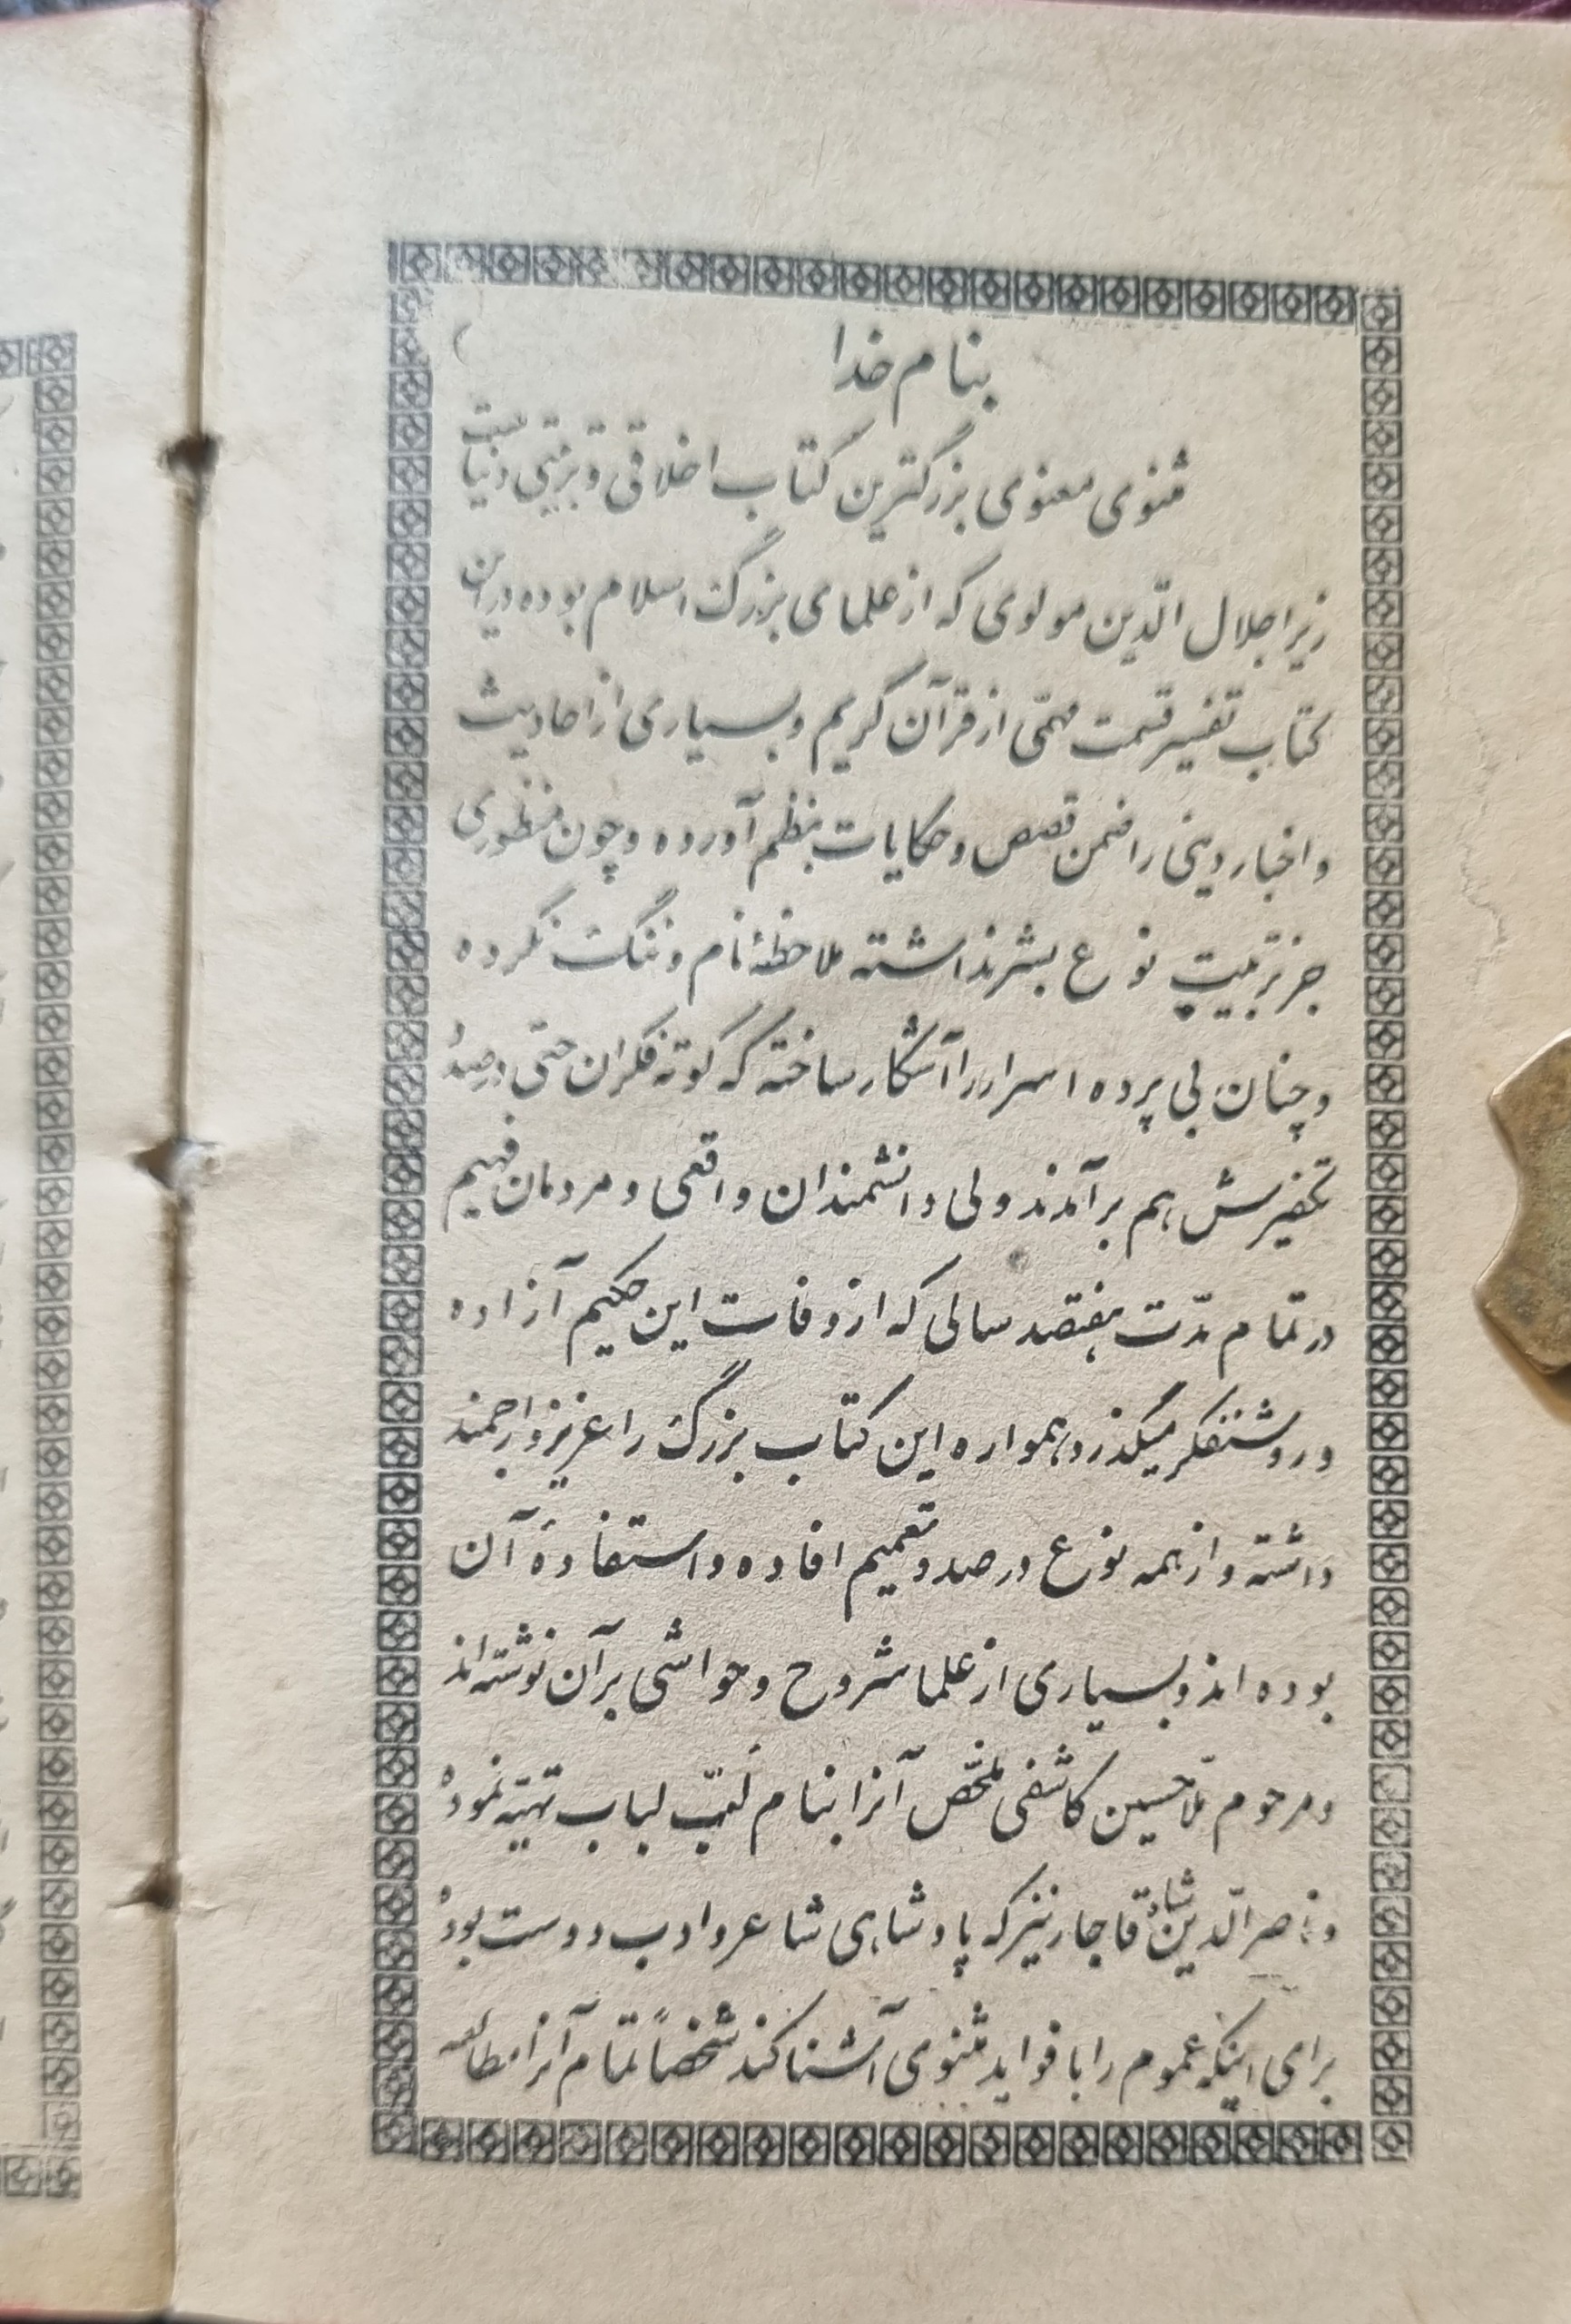 بنام خدا
مثنوی معنوی بزرگترین کتاب اخلاقی و تربیتی دنیاست
زیرا جلال الّدین مولوی که از علمای بزرگ اسلام بوده در این
کتاب تفسیر قسمت مهمّی از قرآن کریم و بسیاری از احادیث
و اخبار دینی را ضمن قصص و حکایات بنظم آورده و چون منظوری
جز تربیت نوع بشر نداشته ملاحظهٔ نام و ننگ نکرده
و چنان بی پرده اسرار را آشکار ساخته که کوته فکران حتی در صدد
تکفیرش هم برآمدند ولی دانشمندان واقعی و مردمان فهیم
در تمام مدّت هفتصد سالی که از وفات این حکیم آزاده
و روشنفکر میگذرد همواره این کتاب بزرگ را عزیز و ارجمند
داشته و از همه نوع در صدد تعمیم افاده و استفادهٔ آن
بوده اند و بسیاری از علما شروح و حواشی بر آن نوشته اند
و مرحوم ملّا حسین کاشفی ملخّص آنرا بنام لَبّ لباب تهیّه نموده
و ناصر الّدین شاه قاجار نیز که پادشاهی شاعر و ادب دوست بوده
برای اینکه عموم را با فواید مثنوی آشنا کند شخصاً تمام آنرا مطالعه